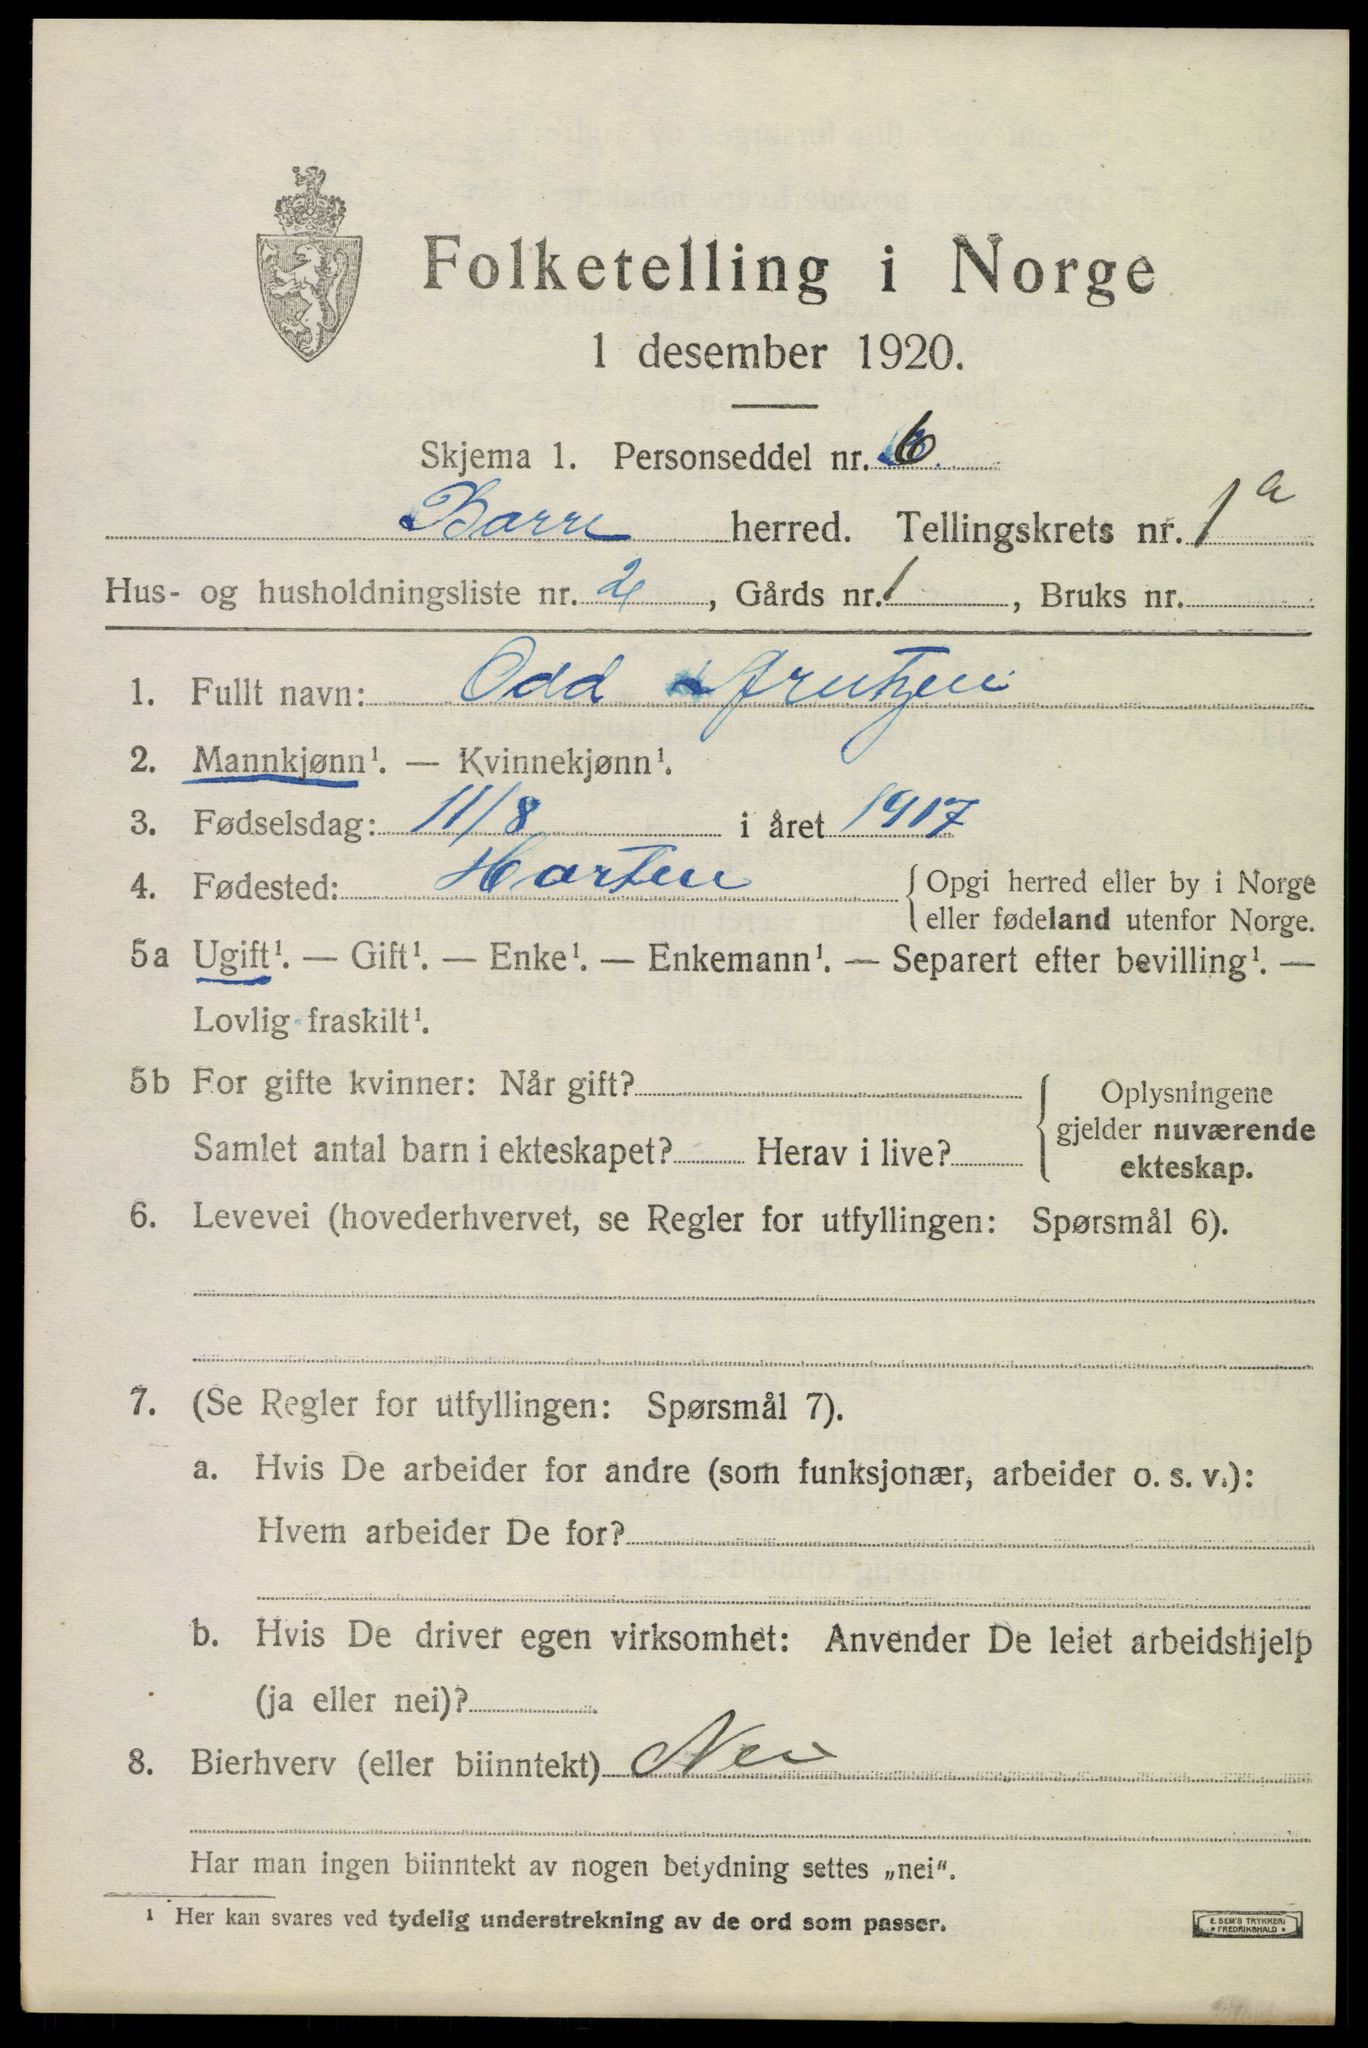 Folketelling i Norge
1 desember 1920.
Skjema 1. Personseddel nr. 6
Borre herred. Tellingskrets nr. 1a
Hus- og husholdningsliste nr. 2, Gårds nr. 1, Bruks nr.
1. Fullt navn: Odd
2. Mannkjønn¹. — Kvinnekjønn¹.
3. Fødselsdag: 11/8 i året 1917
4. Fødested: Horten { Opgi herred eller by i Norge
eller fødeland utenfor Norge.
5a Ugift¹. — Gift¹. — Enke¹. — Enkemann¹. — Separert efter bevilling¹. —
Lovlig fraskilt¹.
5b For gifte kvinner: Når gift? { Oplysningene
gjelder nuværende
Samlet antal barn i ekteskapet? Herav i live?
ekteskap.
6. Levevei (hovederhvervet, se Regler for utfyllingen: Spørsmål 6).
7. (Se Regler for utfyllingen: Spørsmål 7).
a. Hvis De arbeider for andre (som funksjonær, arbeider o. s. v.):
Hvem arbeider De for?
b. Hvis De driver egen virksomhet: Anvender De leiet arbeidshjelp
(ja eller nei)?
8. Bierhverv (eller biinntekt) Nei
Har man ingen biinntekt av nogen betydning settes „nei“.
¹ Her kan svares ved tydelig understrekning av de ord som passer.
E. SEM'S TRYKKERI
FREDRIKSHALD